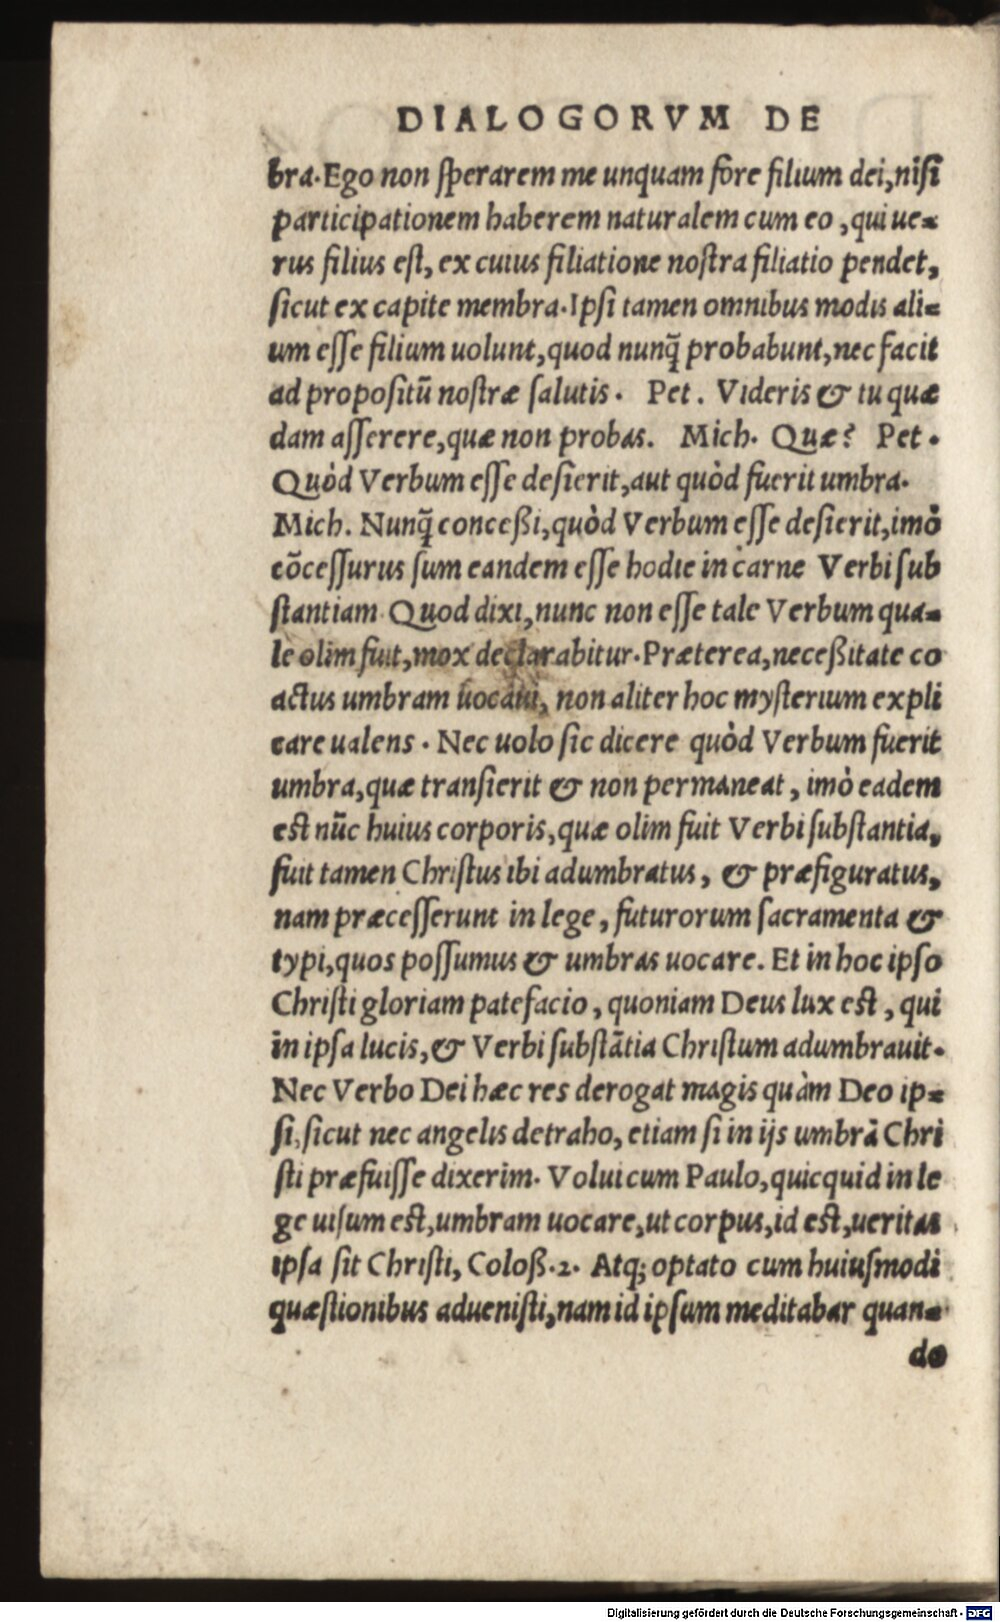 DIALOGORVM DE
bra. Ego non sperarem me unquam fore filium dei, nisi
participationem haberem naturalem cum eo, qui ue=
rus filius est, ex cuius filiatione nostra filiatio pendet,
sicut ex capite membra. Ipsi tamen omnibus modis ali=
um esse filium uolunt, quod nunq̃ probabunt, nec facit
ad propositũ nostræ salutis. Pet. Videris & tu quæ
dam asserere, quæ non probas. Mich. Quæ? Pet.
Quòd Verbum esse desierit, aut quòd fuerit umbra.
Mich. Nunq̃ conceßi, quòd Verbum esse desierit, imò
cõcessurus sum eandem esse hodie in carne Verbi sub
stantiam Quod dixi, nunc non esse tale Verbum qua=
le olim fuit, mox declarabitur. Præterea, neceßitate co
actus umbram uocaui, non aliter hoc mysterium expli
care ualens. Nec uolo sic dicere quòd Verbum fuerit
umbra, quæ transierit & non permaneat, imò eadem
est nũc huius corporis, quæ olim fuit Verbi substantia,
fuit tamen Christus ibi adumbratus, & præfiguratus,
nam præcesserunt in lege, futurorum sacramenta &
typi, quos possumus & umbras uocare. Et in hoc ipso
Christi gloriam patefacio, quoniam Deus lux est, qui
in ipsa lucis, & Verbi substãtia Christum adumbrauit.
Nec Verbo Dei hæc res derogat magis quàm Deo ip=
si, sicut nec angelis detraho, etiam si in ijs umbrã Chri
sti præfuisse dixerim. Volui cum Paulo, quicquid in le
ge uisum est, umbram uocare, ut corpus, id est, ueritas
ipsa sit Christi, Coloß. 2. Atq; optato cum huiusmodi
quæstionibus aduenisti, nam id ipsum meditabar quan=
do
Digitalisierung gefördert durch die Deutsche Forschungsgemeinschaft - DFG